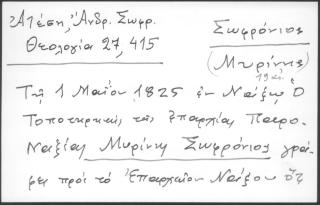 Ἀτέση, Ἀνδρ. Σωφρ.
Θεολογία 27, 415
Σωφρόνιος
(Μυρίνης)
19 αἰ.
Τῇ 1 Μαΐου 1825 ἐν Ναξίῳ ὁ
Τοποτηρητὴς τῆς Ἐπαρχίας Παρο-
Ναξίας Μυρίνης Σωφρόνιος γρά-
φει πρὸς τὸ Ἐπαρχεῖον Νάξου ὅτι